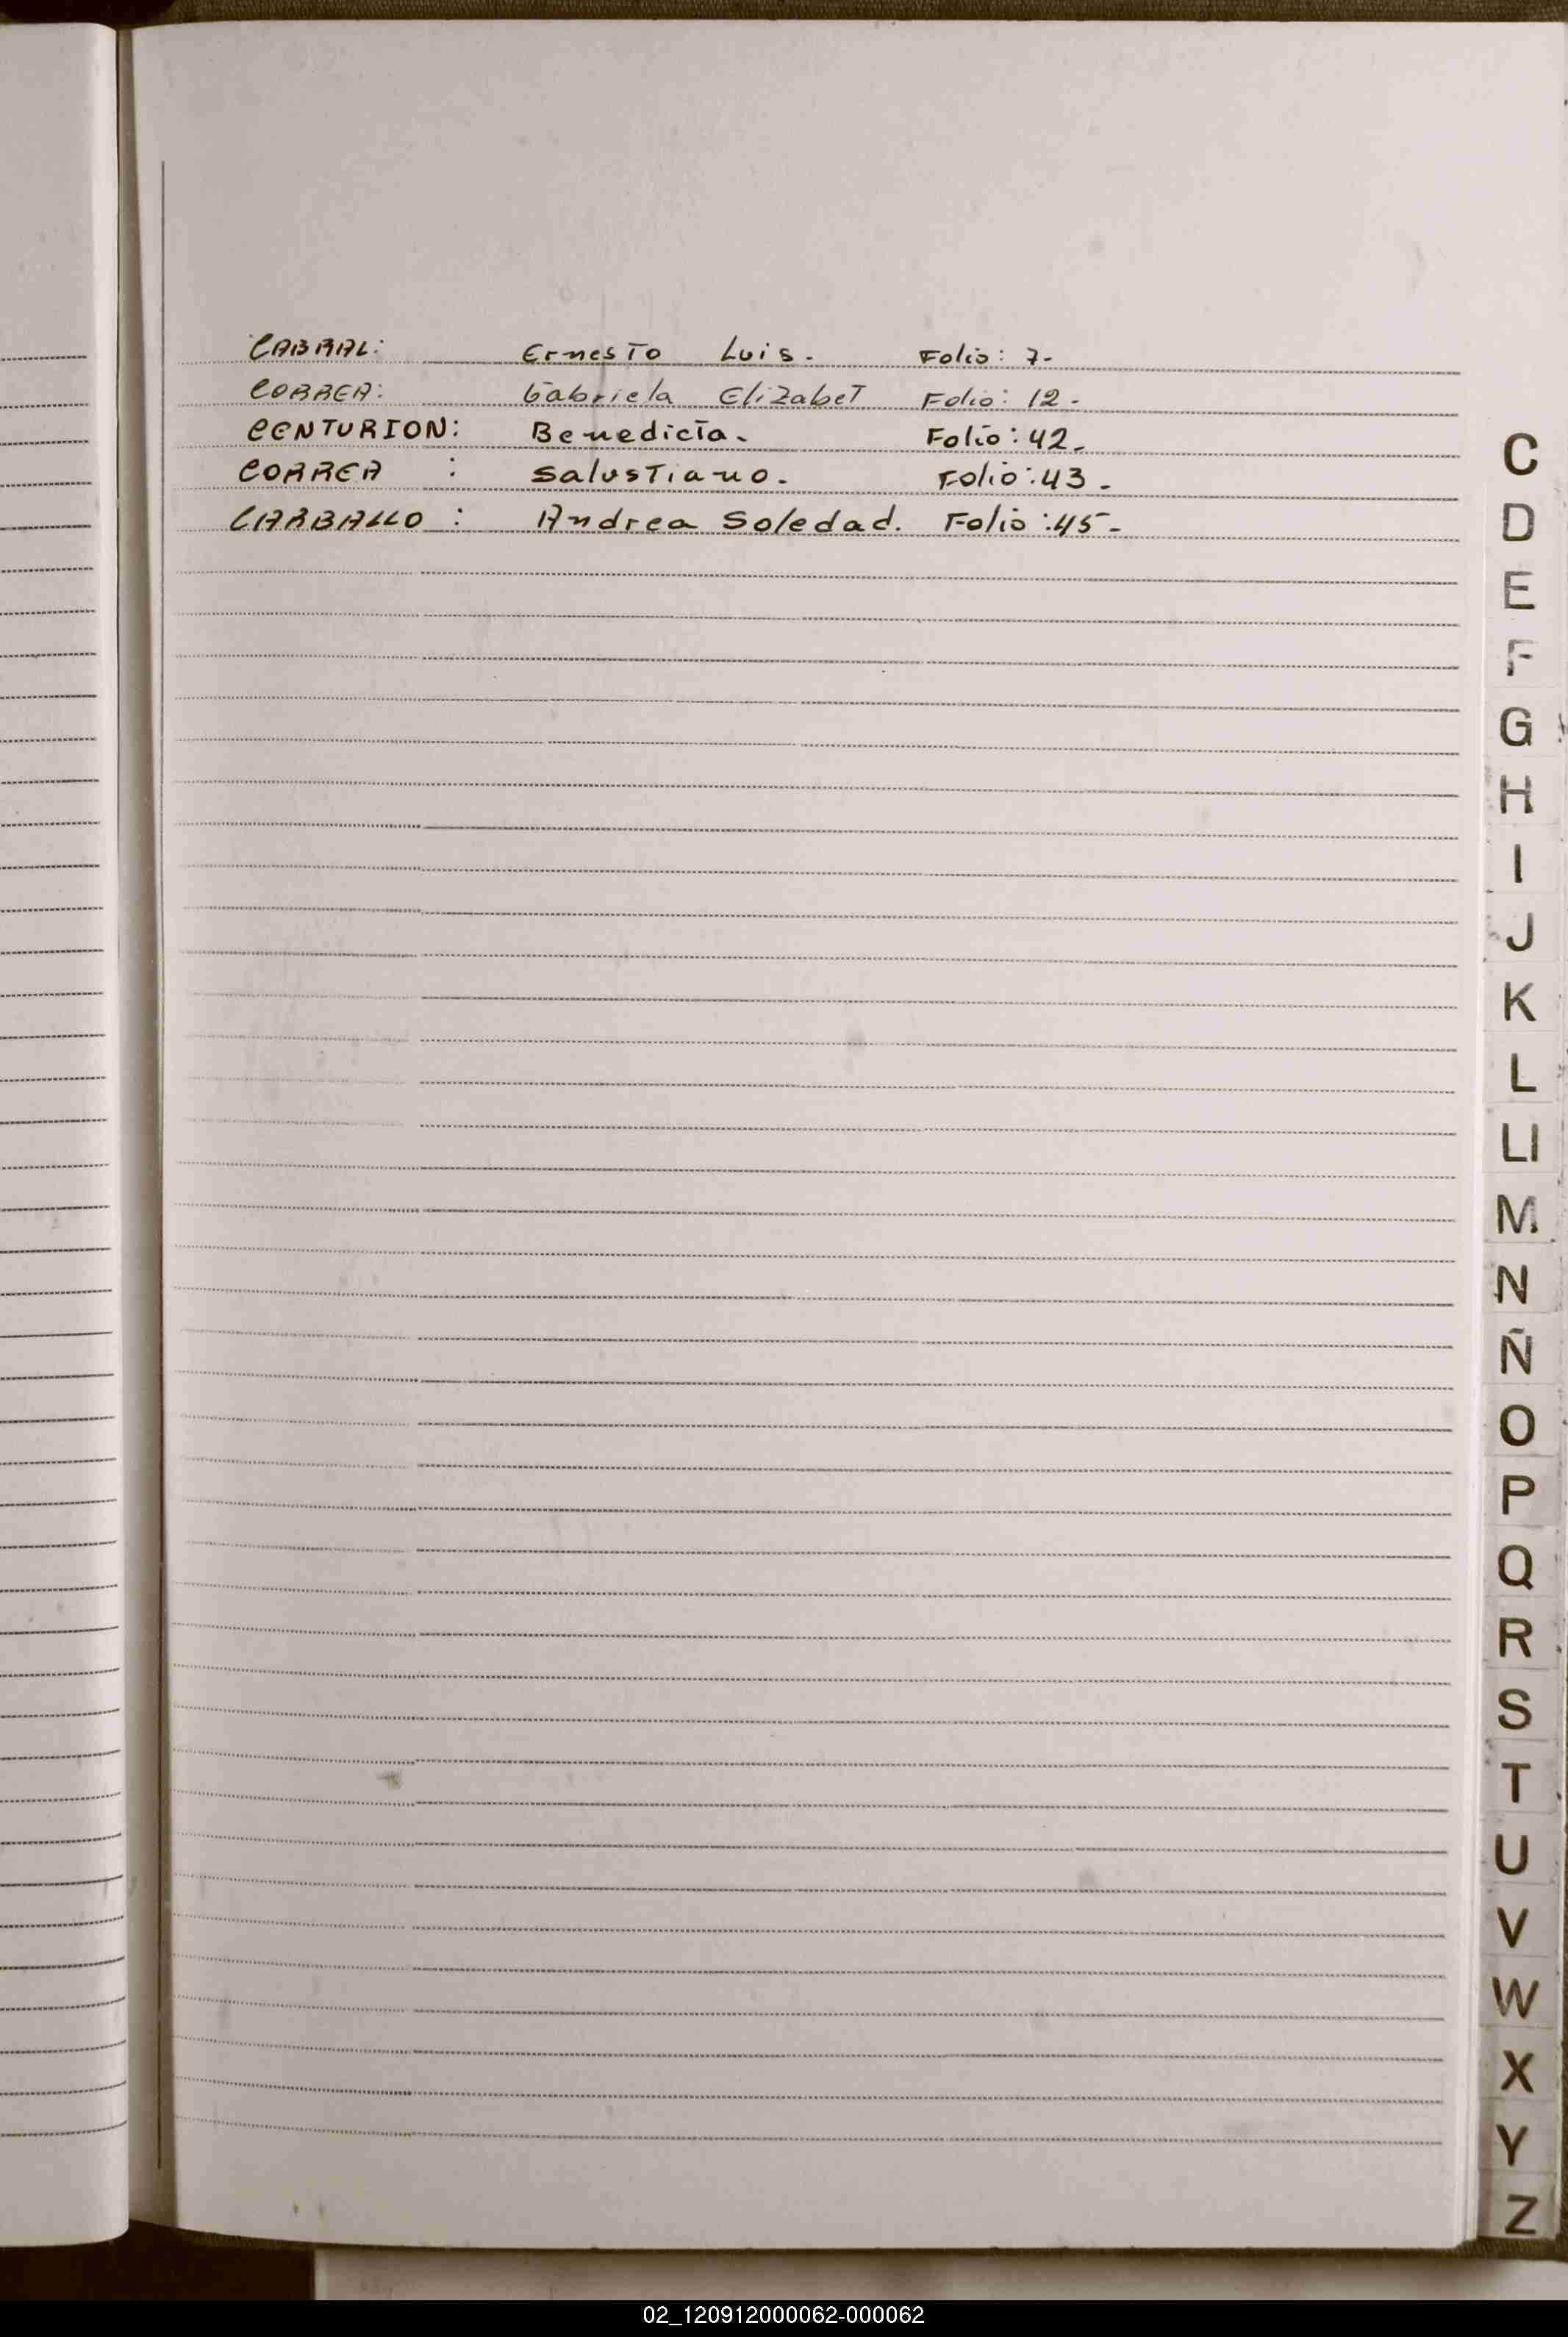 CABRAL: Ernesto Luis. Folio: 7-
CORREA: Gabriela Elizabet Folio: 12-
CENTURION: Benedicta. Folio: 42-
CORREA : Salustiano. Folio: 43-
CARBALLO : Andrea Soledad. Folio: 45-
C
D
E
F
G
H
I
J
K
L
Ll
M
N
Ñ
O
P
Q
R
S
T
U
V
W
X
Y
Z
02_120912000062-000062